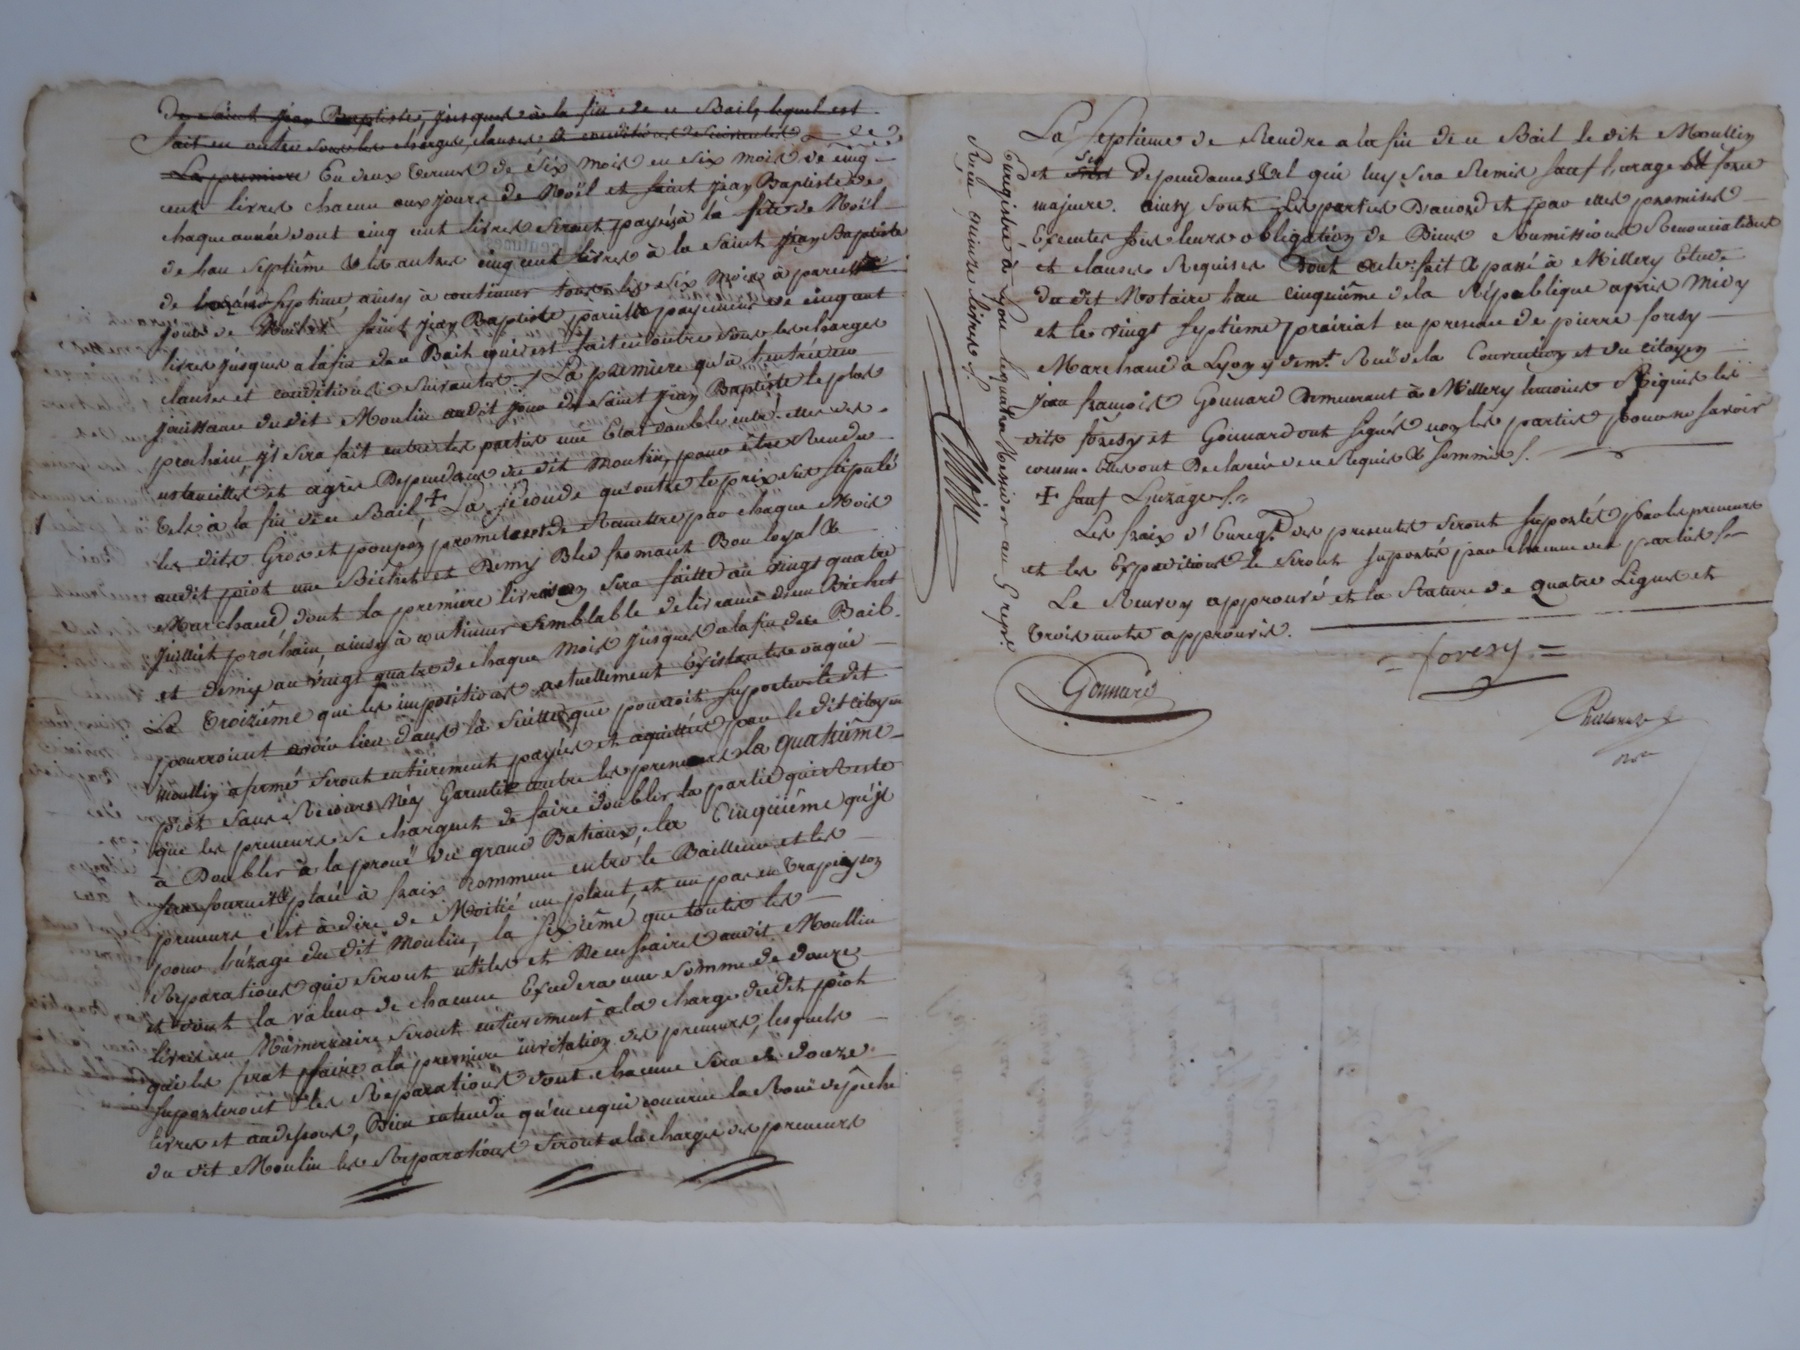 de Saint jean Baptiste, jusques à la fin de ce Bail, lequel est
fait en outre sous les charges, clauses & conditions suivantes
La premiere En deux termes de six mois en six mois de cinq
cent livres chacun aux jours de Noël et Saint jean Baptiste de
chaque année dont cinq cent livres seront payés à la fête de Noël
de l'an Septième & les autres cinq cent livres à la Saint jean Baptiste
de Septime, ainsy à continuer tous les six mois à pareils
jours de Noël et Saint jean Baptiste pareille payement de cinq cent
livres jusques à la fin de ce Bail qui est fait en outre sous les charges
clauses et conditions suivantes. / La premiere qu'à l'entrée en
jouissance du dit Moulin audit jour de Saint jean Baptiste le plus
prochain, il sera fait entre les parties une Etat double entre elles des
ustancilles et agrès Dependans du dit Moulin, pour être Rendu
tels à la fin de ce Bail, + La seconde qu'outre le prix sus stipulé
les dits Gros et poupon promettent de Remettre par chaque Mois
audit piot une Bichet et Demy Bled fromant Bon loyal &
Marchand dont la premiere livraison sera faitte au vingt quatre
juillet prochain, ainsy à continuer semblable delivrance d'un Bichet
et demy au vingt quatre de chaque mois jusques à la fin de ce Bail.
La troizième que les impositions actuellement Existantes ou qui
pourroient avoir lieu dans la suitte que pourroit suporter le dit
Moullin afermé seront entierement payés et aquittés par le dit citoyen
piot sans Recours Néy Garentie contre les preneurs la quatrième
que les preneurs se chargent de faire doubler la partie qui reste
à Doubler à la prouë du grand Batiaux, la Cinquième qu'il
sera fourni et placé à fraix commun entre le Bailleur et les
preneurs c'est à dire de Moitié un plant, et un pas en trapignon
pour l'uzage du dit Moulin, la sixième que toutes les
Reparations qui seront utiles et Necessaires audit Moullin
et dont la valeur de chacune Exedera une somme de douze
livres en Numerraire seront entierement à la charge dudit piot
qui les ferat faire à la premiere invitation des preneurs, lesquels
suporteront les Reparations dont chacune sera de douze
livres et audessous, Bien entendu qu'en ce qui concerne la Rouë de pêche
du dit Moulin les Reparations seront à la charge des preneurs
La septieme de Rendre à la fin de ce Bail le dit Moullin
et ses Dependances tel qui luy sera Remis sauf l'urage & force
majeure. ainsy sont les parties D'acord et par elles promises
Executer sous leurs obligation de Biens soumissions Renonciations
et clauses Requises Dont acte: fait & passé à Millery Etude
du dit Notaire l'an cinquième de la République après Midy
et le vingt septième prairial en presence de pierre foresy
Marchand à Lyon y demt. Ruë de la Convention et du citoyen
jean françois Gonnard Demeurant à Millery temoins Requis les
dits foresy et Gonnard ont signés non les parties pour ne savoir
comme Elles ont Declarés de ce Requis & sommés /.
+ sauf L'uzage /.
Les fraix d'Enregt. des presentes seront suportés par les preneurs
et les Expeditions le seront suportés par chacune des parties /.
Le Renvoy approuvé et la Rature de quatre Lignes et
trois mots approuvés.
Gonnard
= foresy =
not
Enregistré à Lyon le quatre Messidor au G rep.
Reçu quinze livres /.